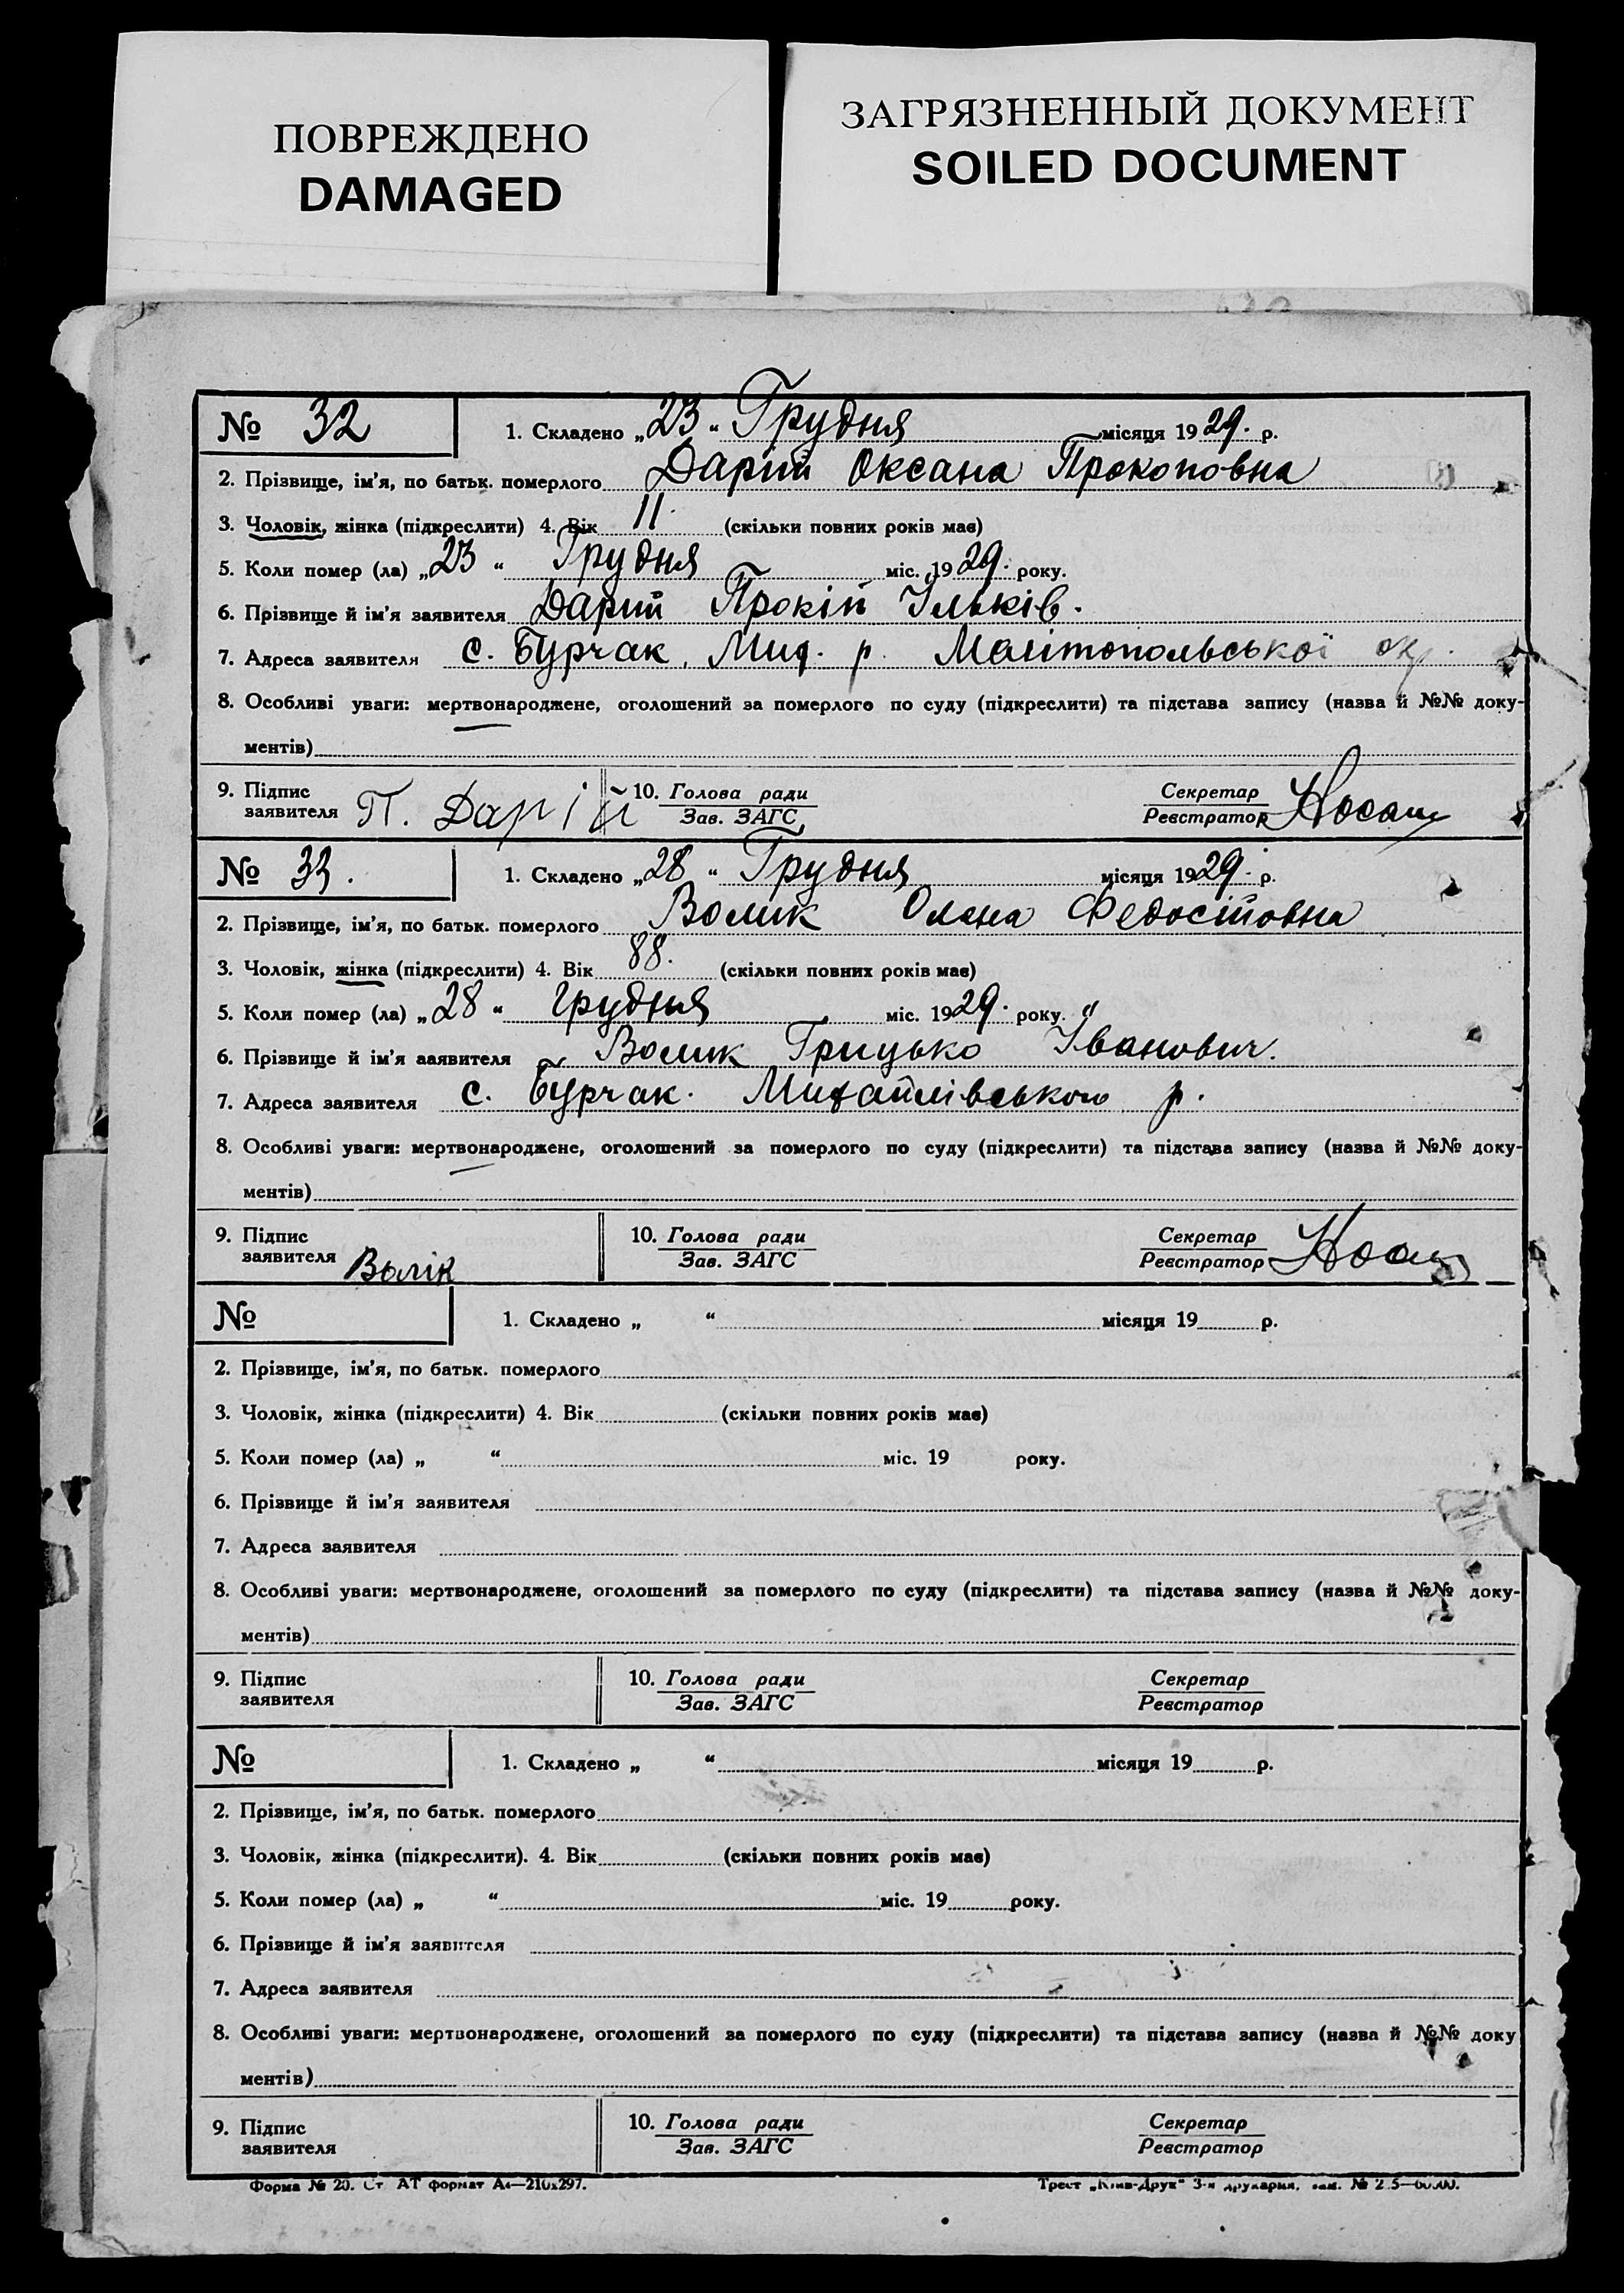 ПОВРЕЖДЕНО
DAMAGED
ЗАГРЯЗНЕННЫЙ ДОКУМЕНТ
SOILED DOCUMENT
№ 32 1. Складено „23“ Грудня місяця 1929. р.
2. Прізвище, ім'я, по батьк. померлого Дарий Оксана Прокоповна
3. Чоловік, жінка (підкреслити) 4. Вік 11. (скільки повних років має)
5. Коли помер (ла) „23“ Грудня міс. 1929. року.
6. Прізвище й ім'я заявителя Дарий Прокій Ільків.
7. Адреса заявителя с. Бурчак, Мих. р. Малітопольської окр.
8. Особливі уваги: мертвонароджене, оголошений за померлого по суду (підкреслити) та підстава запису (назва й №№ доку-
ментів)
9. Підпис заявителя П. Дарій 10. Голова ради Зав. ЗАГС Секретар Реєстратор
№ 33. 1. Складено „28“ Грудня місяця 1929. р.
2. Прізвище, ім'я, по батьк. померлого Волик Олена Федосіїовна
3. Чоловік, жінка (підкреслити) 4. Вік 88. (скільки повних років має)
5. Коли помер (ла) „28“ грудня міс. 1929. року.
6. Прізвище й ім'я заявителя Волик Грицько Іванович.
7. Адреса заявителя с. Бурчак. Михайлівського р.
8. Особливі уваги: мертвонароджене, оголошений за померлого по суду (підкреслити) та підстава запису (назва й №№ доку-
ментів)
9. Підпис заявителя Волік 10. Голова ради Зав. ЗАГС Секретар Реєстратор
№ 1. Складено „ “ місяця 19 р.
2. Прізвище, ім'я, по батьк. померлого
3. Чоловік, жінка (підкреслити) 4. Вік (скільки повних років має)
5. Коли помер (ла) „ “ міс. 19 року.
6. Прізвище й ім'я заявителя
7. Адреса заявителя
8. Особливі уваги: мертвонароджене, оголошений за померлого по суду (підкреслити) та підстава запису (назва й №№ доку-
ментів)
9. Підпис заявителя 10. Голова ради Зав. ЗАГС Секретар Реєстратор
№ 1. Складено „ “ місяця 19 р.
2. Прізвище, ім'я, по батьк. померлого
3. Чоловік, жінка (підкреслити). 4. Вік (скільки повних років має)
5. Коли помер (ла) „ “ міс. 19 року.
6. Прізвище й ім'я заявителя
7. Адреса заявителя
8. Особливі уваги: мертвонароджене, оголошений за померлого по суду (підкреслити) та підстава запису (назва й №№ доку
ментів)
9. Підпис заявителя 10. Голова ради Зав. ЗАГС Секретар Реєстратор
Форма № 20. Ст. АТ формат А4—210х297. Трест „Київ-Друк“ 3-я друкарня, зам. №